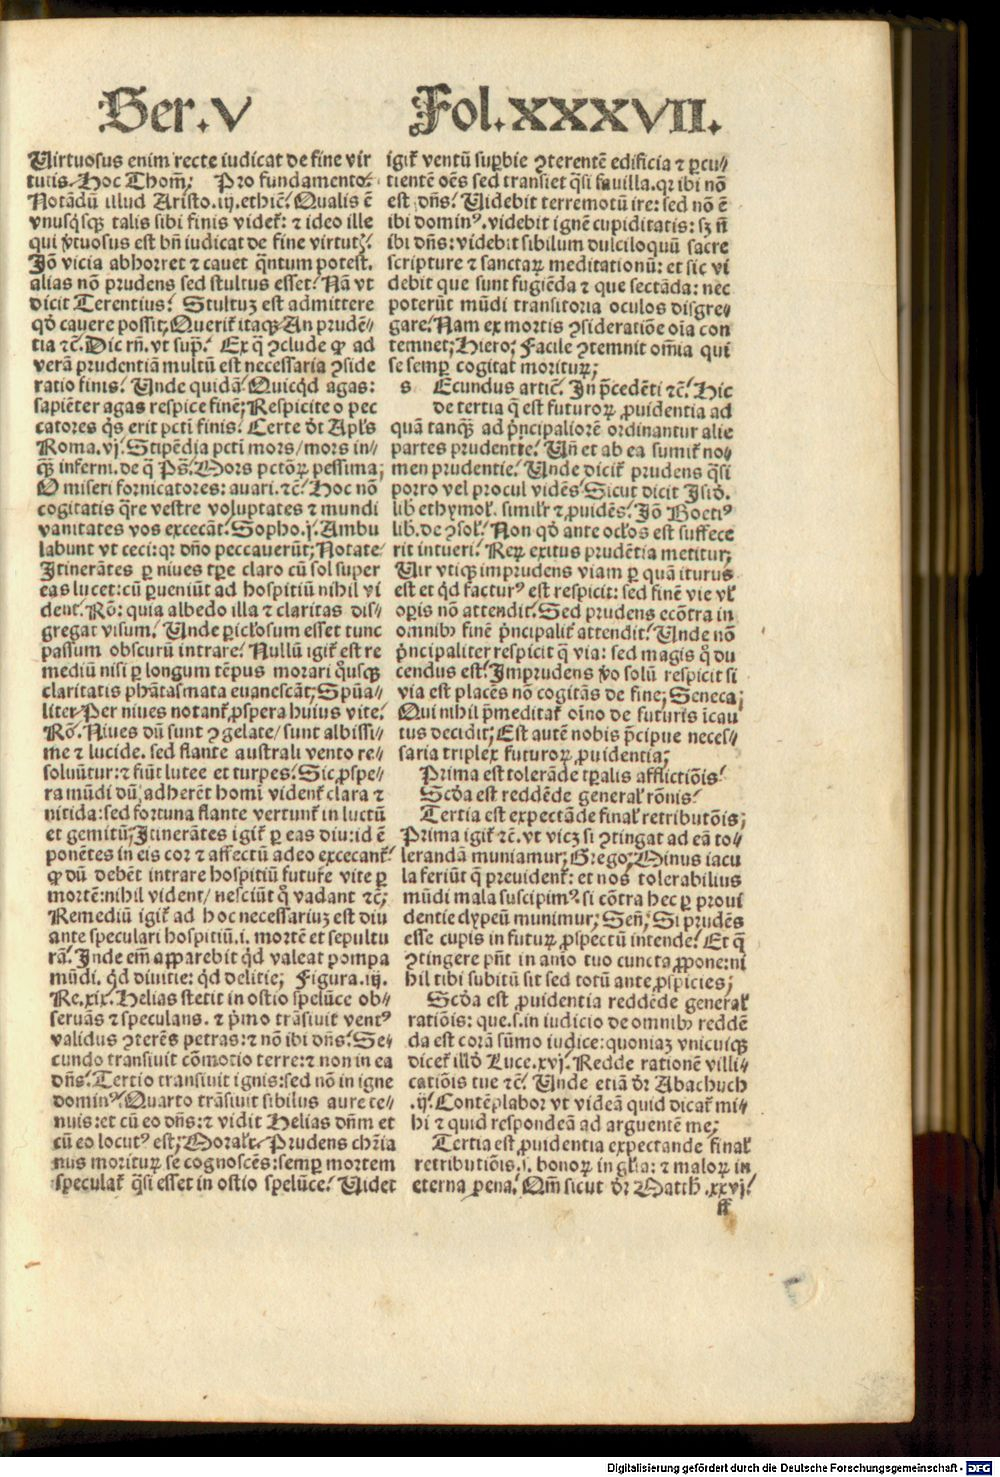 Ser. V
Fol. XXXVII.
Virtuosus enim recte iudicat de fine vir
tutis. Hoc Thom̄. Pro fundamento.
Notādū illud Aristo. iij. ethic̄. Qualis ē
vnusq̄sqꝫ talis sibi finis videt᷑: ⁊ ideo ille
qui v̓tuosus est bn̄ iudicat de fine virtutꝭ.
Iō vicia abhorret ⁊ cauet q̄ntum potest.
alias nō prudens sed stultus esset. Nā vt
dicit Terentius. Stultuꝫ est admittere
qd̓ cauere possit. Querit᷑ itaqꝫ An prudē⸗
tia ⁊c̄. Dic rn̄. vt sup̄. Ex q̄ ꝯclude ꝙ ad
verā prudentiā multū est necessaria ꝯside
ratio finis. Unde quidā. Quicq̄d agas:
sapiēter agas respice finē. Respicite o pec
catores q̄s erit pcti finis. Certe dt̓ Apl's
Roma. vj. Stipēdia pcti mors / mors in⸗
qꝫ inferni. de q̄ Ps̄. Mors pctōꝝ pessima;
O miseri fornicatores: auari. ⁊c̄. Hoc nō
cogitatis q̄re vestre voluptates ⁊ mundi
vanitates vos excecāt. Sopho. j. Ambu
labunt vt ceci: qꝛ dn̄o peccauerūt. Notate
Itinerātes ꝑ niues tꝑe claro cū sol super
eas lucet: cū ꝑueniūt ad hospitiū nihil vi
dent. Rō: quia albedo illa ⁊ claritas dis⸗
gregat visum. Unde ꝑicl'osum esset tunc
passum obscurū intrare. Nullū igit᷑ est re
mediū nisi ꝑ longum tēpus morari q̄usqꝫ
claritatis phātasmata euanescāt. Spūa⸗
liter Per niues notant᷑ ꝓspera huius vite.
Rō. Niues dū sunt ꝯgelate / sunt albissi⸗
me ⁊ lucide. sed flante australi vento re⸗
soluūtur: ⁊ fiūt lutee et turpes. Sic ꝓspe⸗
ra mūdi dū adherēt homi vident᷑ clara ⁊
nitida: sed fortuna flante vertunt᷑ in luctū
et gemitū. Itinerātes igit᷑ ꝑ eas diu: id ē
ponētes in eis cor ⁊ affectū adeo excecant᷑.
ꝙ dū debēt intrare hospitiū future vite ꝑ
mortē: nihil vident / nesciūt q̄ vadant ⁊c̄;
Remediū igit᷑ ad hoc necessariuꝫ est diu
ante speculari hospitiū .i. mortē et sepultu
rā. Inde em̄ apparebit q̄d valeat pompa
mūdi. q̄d diuitie: q̄d delitie; Figura. iij.
Re. xix. Helias stetit in ostio spelūce ob⸗
seruās ⁊ speculans. ⁊ p̓mo trāsiuit ventꝰ
validus ꝯterēs petras: ⁊ nō ibi dn̄s. Se⸗
cundo transiuit cōmotio terre: ⁊ non in ea
dn̄s. Tertio transiuit ignis: sed nō in igne
dominꝰ. Quarto trāsiuit sibilus aure te⸗
nuis: et cū eo dn̄s: ⁊ vidit Helias dn̄m et
cū eo locutꝰ est. Moral't. Prudens chr̄ia
nus moriturꝰ se cognoscēs: semꝑ mortem
speculat᷑ q̄si esset in ostio spelūce. Uidet
igit᷑ ventū suꝑbie ꝯterentē edificia ⁊ ꝑcu⸗
tientē oēs sed transiet q̄si fauilla. qꝛ ibi nō
est dn̄s. Uidebit terremotū ire: sed nō ē
ibi dominꝰ. videbit ignē cupiditatis: sꝫ n̄
ibi dn̄s: videbit sibilum dulciloquū sacre
scripture ⁊ sanctaꝝ meditationū: et sic vi
debit que sunt fugiēda ⁊ que sectāda: nec
poterūt mūdi transitoria oculos disgre⸗
gare. Nam ex mortis ꝯsideratiōe oīa con
temnet. Hiero. Facile ꝯtemnit om̄ia qui
se semꝑ cogitat moriturꝝ;
s Ecundus artic̄. In p̄cedēti ⁊c̄. Hic
de tertia q̄ est futuroꝝ ꝓuidentia ad
quā tanqꝫ ad p̓ncipaliorē ordinantur alie
partes prudentie. Un̄ et ab ea sumit᷑ no⸗
men prudentie. Unde dicit᷑ prudens q̄si
porro vel procul vidēs. Sicut dicit Isid̓.
lib ethymol'. simil'r ⁊ ꝓuidēs. Iō Boetiꝰ
lib. de ꝯsol'. Non qd̓ ante ocl'os est suffece
rit intueri. Reꝝ exitus prudētia metitur;
Uir vtiqꝫ imprudens viam ꝑ quā iturus
est et q̄d facturꝰ est respicit: sed finē vie vl'
oꝑis nō attendit. Sed prudens ecōtra in
omnibꝫ finē p̓ncipalit᷑ attendit. Unde nō
p̓ncipaliter respicit q̄ via: sed magis q̄ du
cendus est. Imprudens v̓o solū respicit si
via est placēs nō cogitās de fine. Seneca;
Qui nihil p̄meditat᷑ oīno de futuris īcau
tus decidit. Est autē nobis p̄cipue neces⸗
saria triplex futuroꝝ ꝓuidentia;
Prima est tolerāde tꝑalis afflictiōis
Scd̓a est reddēde general' rōnis
Tertia est expectāde final' retributōis;
Prima igit᷑ ⁊c̄. vt vicꝫ si ꝯtingat ad eā to⸗
lerandā muniamur. Grego. Minus iacu
la feriūt q̄ preuident᷑: et nos tolerabilius
mūdi mala suscipimꝰ. si cōtra hec ꝑ proui
dentie clypeū munimur. Sen̄. Si prudēs
esse cupis in futurꝝ ꝓspectū intende. Et q̄
ꝯtingere pn̄t in aīo tuo cuncta ꝓpone: ni
hil tibi subitū sit sed totū ante ꝓspicies;
Scd̓a est ꝓuidentia reddēde general'
ratiōis: que .s. in iudicio de omnibꝫ reddē
da est corā sūmo iudice: quoniaꝫ vnicuiqꝫ
dicet᷑ ill'd̓ Luce. xvj. Redde rationē villi⸗
catiōis tue ⁊c̄. Unde etiā dr̓ Abachuch
.ij. Contēplabor vt videā quid dicat᷑ mi⸗
hi ⁊ quid respondeā ad arguentē me;
Tertia est ꝓuidentia expectande final'
retributiōis .s. bonoꝝ in gl'ia: ⁊ maloꝝ in
eterna pena. Qm̄ sicut dr̓ Matth̓. xxvj.
ff
Digitalisierung gefördert durch die Deutsche Forschungsgemeinschaft - DFG